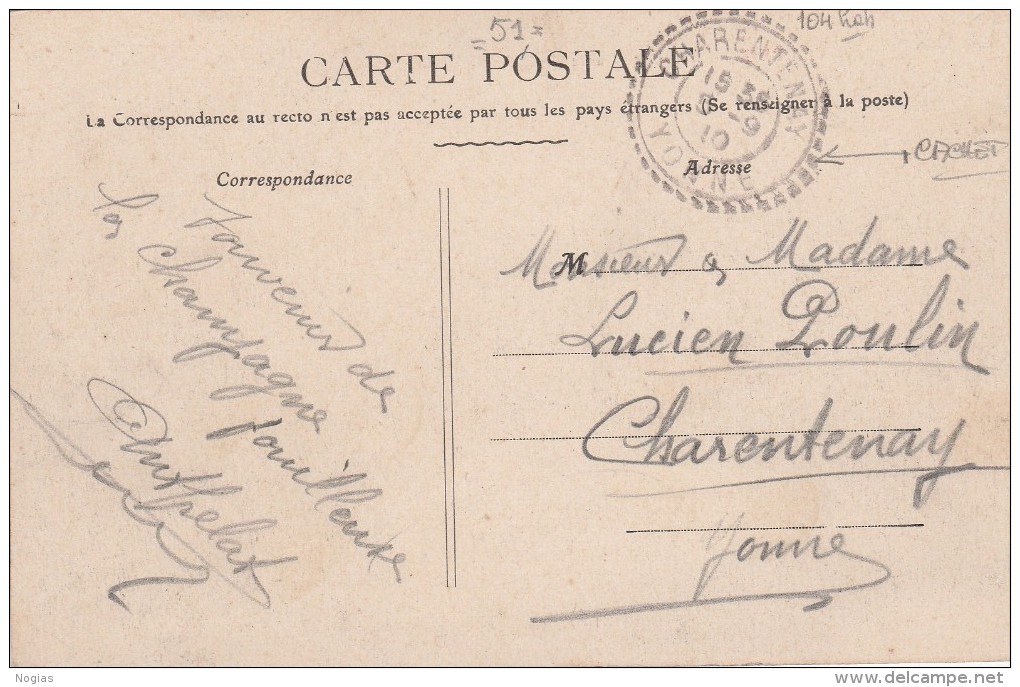 =51=
104
CARTE POSTALE
La Correspondance au recto n'est pas acceptée par tous les pays étrangers (Se renseigner à la poste)
CHARENTENAY
15
9
10
YONNE
CACHET
Correspondance
Adresse
Souvenir de
la Champagne
pouilleuse
M
Monsieur & Madame
Lucien Poulin
Charentenay
Yonne
Nogias
delcampe.net